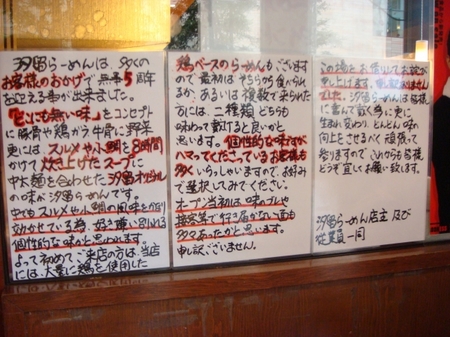 汐留らーめんは、多くの
お客様のおかげで無事5周年
を迎える事が出来ました。
「どこにも無い味」をコンセプト
に豚骨や鶏がら牛骨に野菜
更にはスルメや小鯛を8時間
かけて炊き上げたスープに
中太麺を合わせた汐留オリジナル
の味が汐留らーめんです。
中でもスルメや小鯛の風味をかなり
効かせている為、好き嫌い別れる
個性的な味かと思われます
よって初めてご来店の方は、当店
には、大量に鶏を使用した
鶏ベースのらーめんもございます
ので最初はそちらから食べられ
るか、あるいは複数で来られた
方には、二種類どちらも
味わって頂けると良いかと
思います。個性的な味だけが
ハマってくださっているお客様も
多くいらっしゃいますので、お好み
で選択してみてください。
オープン当初は味のブレや
接客等で行き届かない面も
多々あったかと思います。
申し訳ございません。
この場をお借りしてお詫び
申し上げます。
汐留らーめんは皆様
に喜んで頂く為に更に
生まれ変わり どんどん味の
向上をさせるべく頑張って
参りますので これからも皆様
どうぞ宜しくお願い致します。
汐留らーめん店主 及び
従業員一同